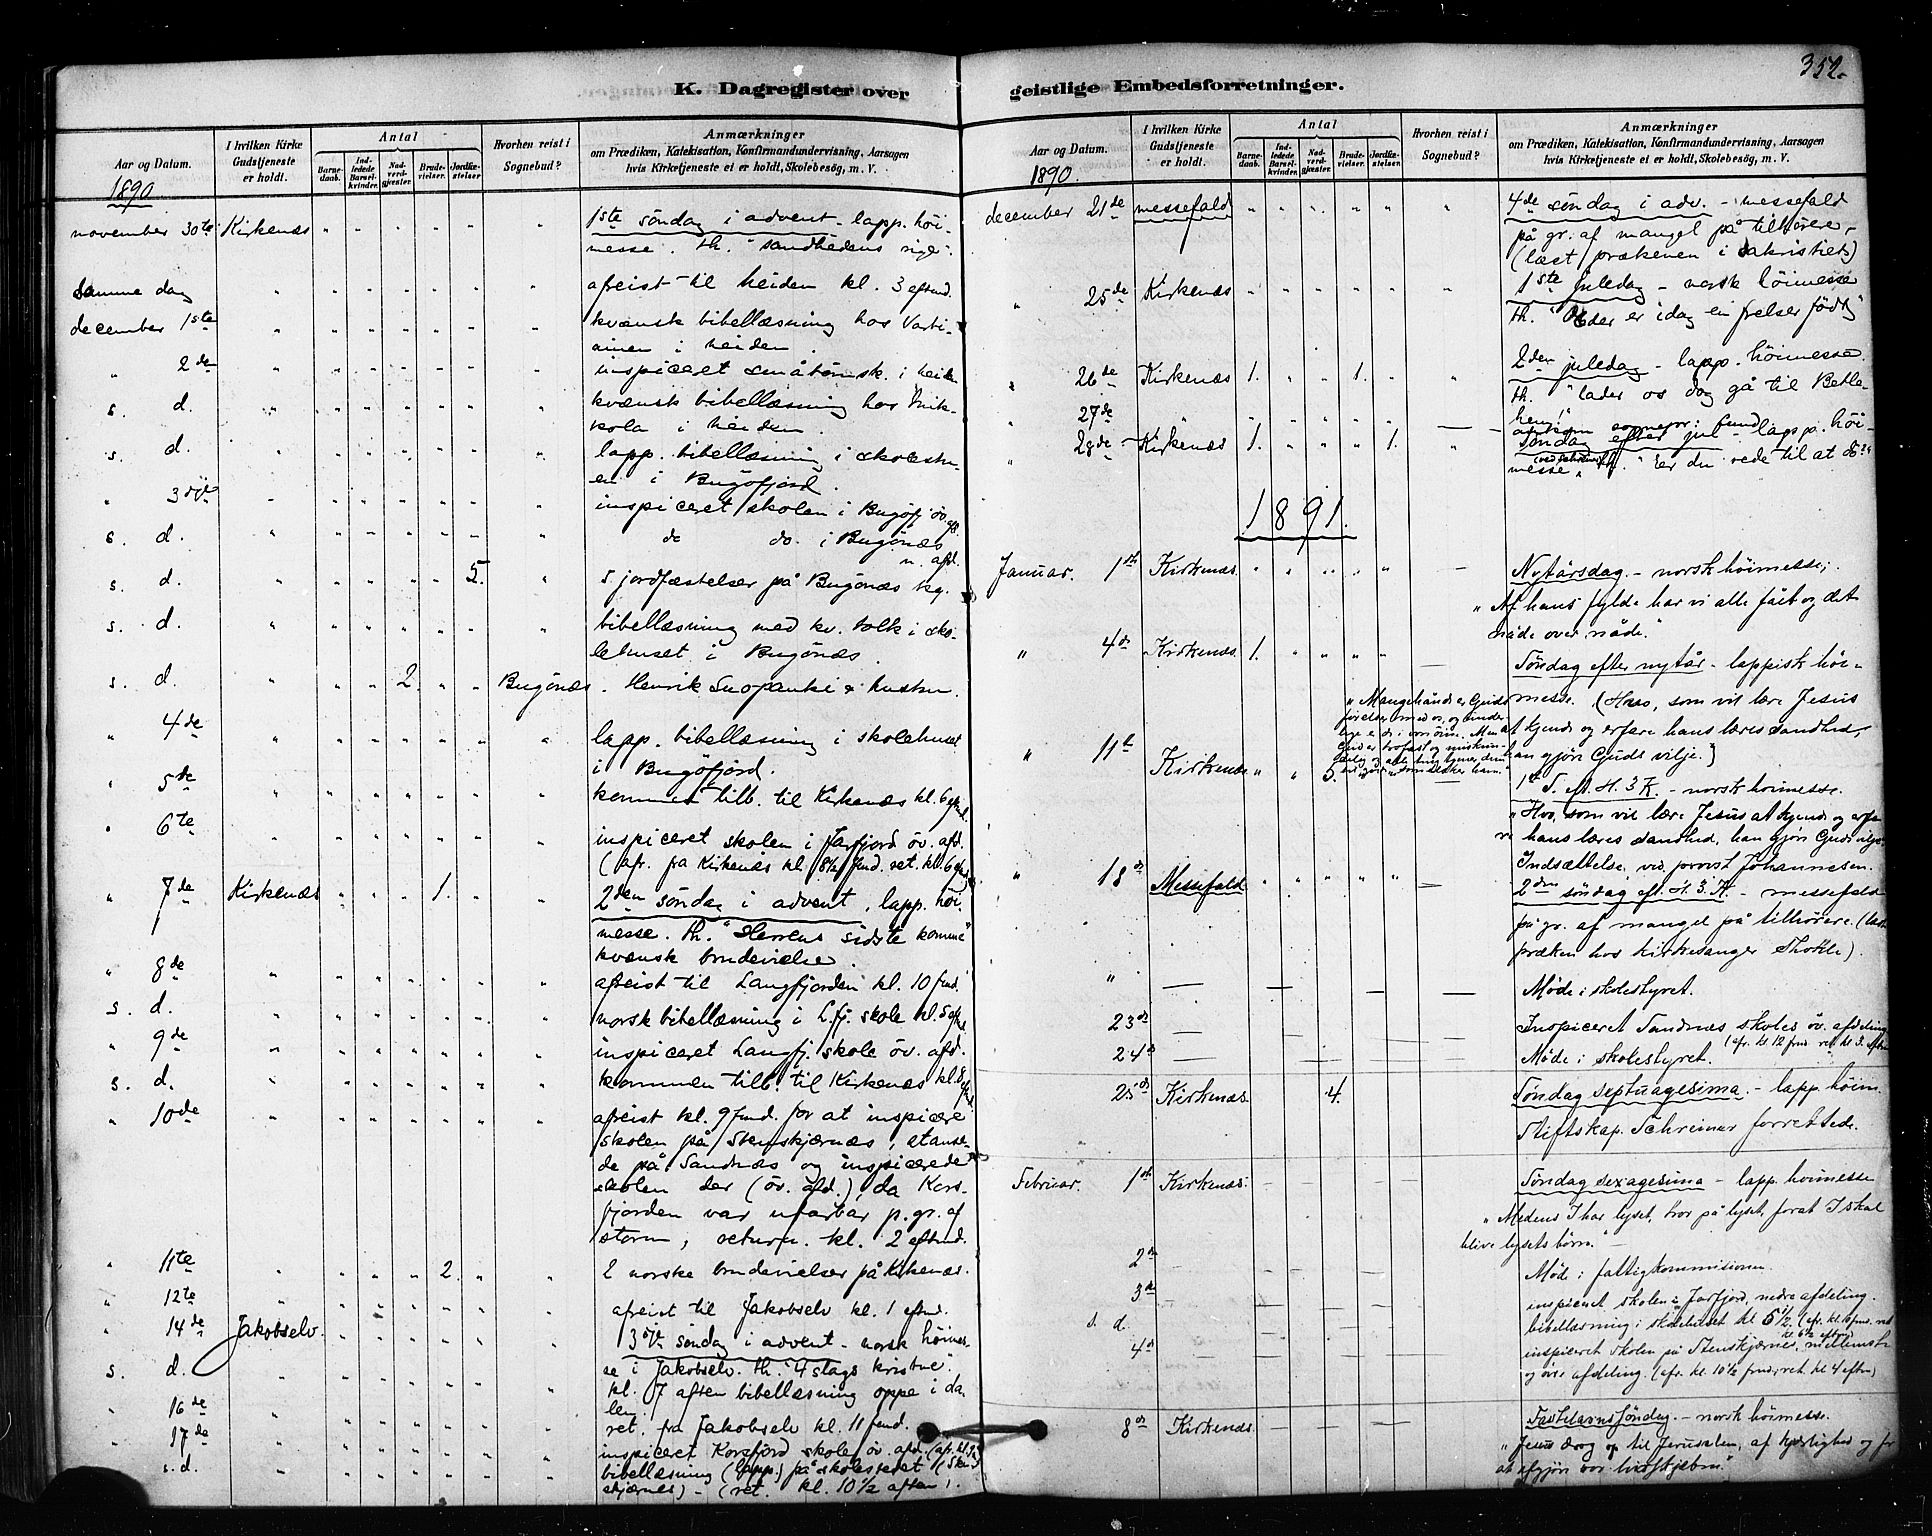 352.
K. Dagregister over geistlige Embedsforretninger.
Aar og Datum.
I hvilken Kirke Gudstjeneste er holdt.
Antal
Barnedaab.
Indledede Barselkvinder.
Nadverdgjester.
Brudevielser.
Jordfæstelser.
Hvorhen reist i Sognebud?
Anmærkninger
om Prædiken, Katekisation, Konfirmandundervisning, Aarsagen
hvis Kirketjeneste ei er holdt, Skolebesög, m. V.
1890.
november 30te Kirkenæs " " " " " " 1ste söndag i advent - lapp. höi-
messe. th. "sandhedens rige".
Samme dag " " " " " " " afreist til heiden kl. 3 eftmd.
december 1ste " " " " " " " kvænsk bibellæsning hos Vartiainen
i heiden.
" 2den " " " " " " " inspiceret småbörnsk. i heiden
s. d. " " " " " " " kvænsk bibellæsning hos
i heiden.
s. d. " " " " " " lapp. bibellæsning i skolestuen
i Bugöfjord.
" 3dje " " " " " " inspiceret skolen i Bugöfj. öv. afd.
s. d. " " " " " " do do. i Bugönæs
n. afd.
s. d. " " " " " 5. " 5 jordfæstelser på Bugönæs kg.
s. d. " " " " " " " bibellæsning med kv. tolk i sko-
lehuset i Bugönæs.
s. d. " " " 2. " " Bugönæs. Henrik & hustru.
" 4de " lapp. bibellæsning i skolehuset
i Bugöfjord.
" 5te " " " " " " kommen tilb. til Kirkenæs kl. 6 eftmd.
" 6te " " " " " " inspiceret skolen i Jarfjord öv. afd.
(afr. fra Kirkenæs kl. 8½ fmd. ret. kl. 6 eftmd)
" 7de Kirkenæs " " " 1. " " 2den söndag i advent, lapp. höi-
messe. th. "Herrens sidste komme"
kvænsk brudevielse.
" 8de " " " " " " afreist til Langfjorden kl. 10 fmd.
s. d. " " " " " " norsk bibellæsning i L.fj. skole kl. 5 eftmd.
" 9de " " " " " " inspiceret Langfj. skole öv. afd.
s. d. " " " " " " kommen tilb. til Kirkenæs kl. 8 eftmd.
" 10de " " " " " " afreist kl. 9 fmd. for at inspicere
skolen på Stenskjærnæs, stanse-
de på Sandnæs og inspicerede
skolen der (öv. afd.), da Kors-
fjorden var ufarbar p. gr. af
storm, return. kl. 2 eftmd.
" 11te " " " " 2 " " 2 norske brudevielser på Kirkenæs.
" 12te " " " " " " afreist til Jakobselv kl. 1 eftmd.
" 14de Jakobselv. " " " " " " 3dje söndag i advent - norsk höimes-
s. d. " " " " " " se i Jakobselv. th. "4 slags kristne".
kl. 7 aften bibellæsning oppe i da-
len.
" 16de " " " " " " ret. fra Jakobselv kl. 11 fmd.
" 17de " " " " " " inspiceret Korsfjord skole öv. afd.
s. d. " " " " " " bibellæsning (lapp.) på skolestedet (Sten-
skjærnæs) - (ret. kl. 10½ aften).
Aar og Datum.
I hvilken Kirke Gudstjeneste er holdt.
Antal
Barnedaab.
Indledede Barselkvinder.
Nadverdgjester.
Brudevielser.
Jordfæstelser.
Hvorhen reist i Sognebud?
Anmærkninger
om Prædiken, Katekisation, Konfirmandundervisning, Aarsagen
hvis Kirketjeneste ei er holdt, Skolebesög, m. V.
1890.
december 21de messefald " " " " " " 4de söndag i adv. - messefald
på gr. af mangel på tilhörere,
(læst prækenen i sakristiet)
" 25de Kirkenæs " " " " " " 1ste juledag - norsk höimesse
th. "Eder er idag en frelser födt"
" 26de Kirkenæs 1. " " 1. " " 2den juledag - lapp. höimesse.
th. "lader os dog gå til Betle-
hem!"
" 27de " " " " " "
" 28de Kirkenæs 1. " " " 1. söndag efter jul - lapp. höi-
messe th. "Er du rede til at dö?"
1891.
Januar. 1ste Kirkenæs. " " " " " — Nytårsdag. - norsk höimesse;
"Af hans fylde har vi alle fået og det
nåde over nåde."
" 4de Kirkenæs. 1. " " " " — Söndag efter nytår - lappisk höi-
messe. (Hvo, som vil lære Jesus
at kjende og erfare hans læres sandhed,
han gjöre Guds vilje.)
" 11te Kirkenæs " " 5. 1ste S. eft. H. 3 K. - norsk höimesse.
"Hvo, som vil lære Jesus at kjende og erfa-
re hans læres sandhed, han gjöre Guds vilje."
Indsættelse ved provst Johannesen.
" 18de Messefald " " " " " — 2den söndag eft. H. 3. K. - messefald
på gr. af mangel på tilhörere. (læst
præken hos kirkesanger).
" — — — — Møde i skolestyret.
23de — Inspiceret Sandnæs skoles öv. afdeling
(afr. kl. 12 fmd ret kl 3. eftm)
24de — Møde i skolestyret.
25de Kirkenæs. 4. Söndag septuagesima. - lapp. höim.
Stiftskap. Schreiner forrettede.
Februar. 1ste Kirkenæs. Söndag sexagesima - lapp. höimesse
"Medens I har lyset, tror på lyset, forat I skal
blive lysets börn." —
2den Møde i fattigkommisionen.
3die inspiceret skolen i Jarfjord, nedre afdeling.
s. d. bibellæsning i skolehuset kl 6½.
4de inspiceret Skolen på Stenskjærnæs, mellemste
og övre afdeling. (afr. kl 10½ fmd, ret. kl 4 eftm)
8de Kirkenæs. Fastelavnssöndag. - norsk höimesse.
"Jesus drog op til Jerusalem, af kjærlighed og for
at afgjöre vor livsskjæbne."